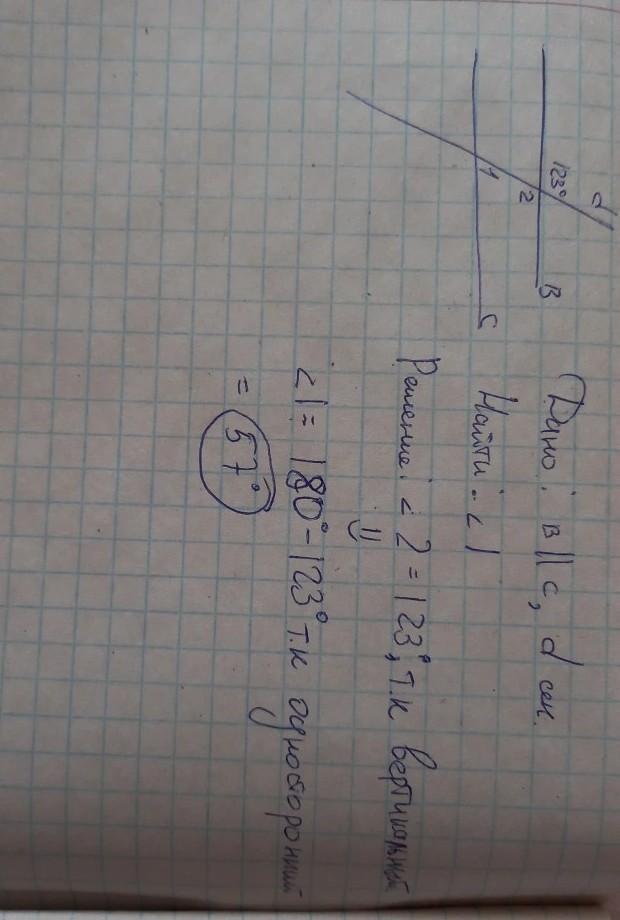 d
123°
2
B
1
C
Дано: в || с, d сек.
Найти: < 1
Решение: < 2 = 123°, т.к вертикальный
< 1 = 180° - 123° т.к односторонний
= 57°